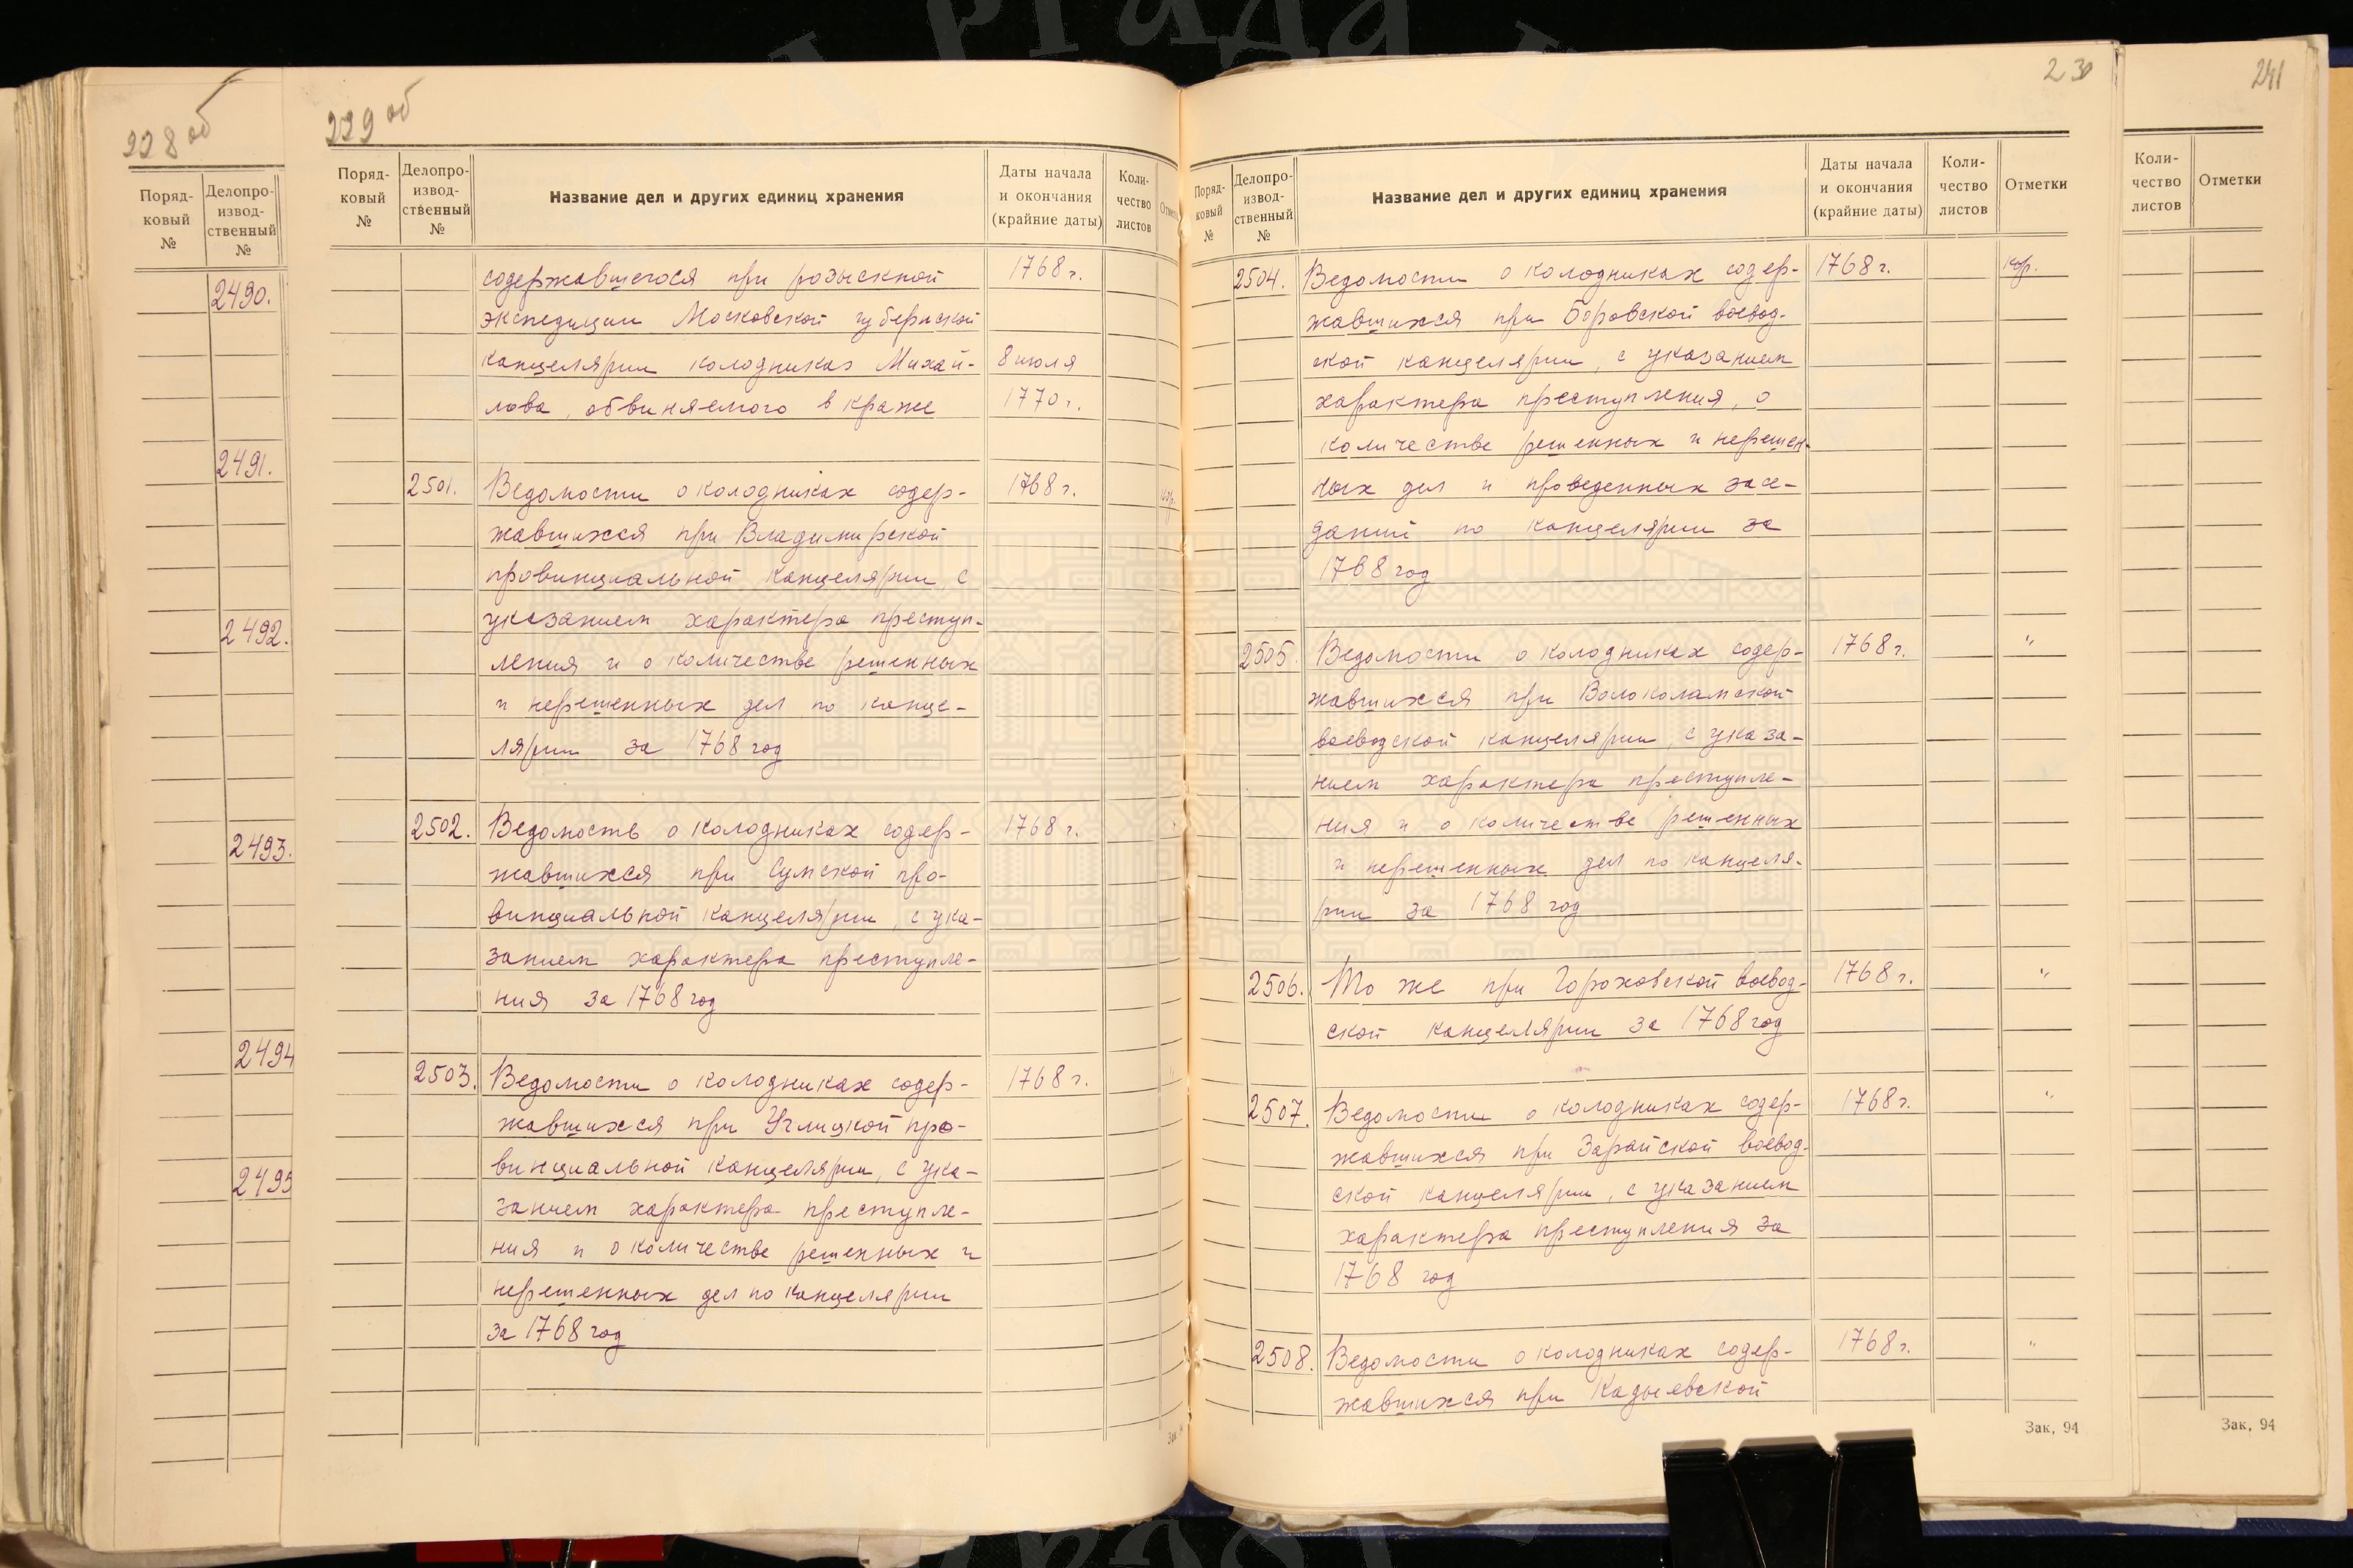 РГАДА
228 об
Поряд-
ковый
№
Делопро-
извод-
ственный
№
2490.
2491.
2492.
2493.
2494
2495
229 об
Поряд-
ковый
№
Делопро-
извод-
ственный
№
Название дел и других единиц хранения
Даты начала
и окончания
(крайние даты)
Коли-
чество
листов
содержавшегося при розыскной 1768 г.
экспедиции Московской губернской
канцелярии колодника Михай- 8 июля
лова, обвиняемого в краже 1770 г.
2501. Ведомости о колодниках содер- 1768 г. кор.
жавшихся при Владимирской
провинциальной канцелярии, с
указанием характера преступ-
ления и о количестве решенных
и нерешенных дел по канце-
лярии за 1768 год
2502. Ведомость о колодниках содер- 1768 г.
жавшихся при Сумской про-
винциальной канцелярии, с ука-
занием характера преступле-
ния за 1768 год
2503. Ведомости о колодниках содер- 1768 г.
жавшихся при Углицкой про-
винциальной канцелярии, с ука-
занием характера преступле-
ния и о количестве решенных и
нерешенных дел по канцелярии
за 1768 год
230
Поряд-
ковый
№
Делопро-
извод-
ственный
№
Название дел и других единиц хранения
Даты начала
и окончания
(крайние даты)
Коли-
чество
листов
Отметки
2504. Ведомости о колодниках содер- 1768 г. кор.
жавшихся при Боровской воевод-
ской канцелярии, с указанием
характера преступления, о
количестве решенных и нерешен-
ных дел и проведенных засе-
даний по канцелярии за
1768 год
2505. Ведомости о колодниках содер- 1768 г. "
жавшихся при Волоколамской
воеводской канцелярии, с указа-
нием характера преступле-
ния и о количестве решенных
и нерешенных дел по канцеля-
рии за 1768 год
2506. То же при Гороховской воевод- 1768 г. "
ской канцелярии за 1768 год
2507. Ведомости о колодниках содер- 1768 г. "
жавшихся при Зарайской воевод-
ской канцелярии, с указанием
характера преступления за
1768 год
2508. Ведомости о колодниках содер- 1768 г. "
жавшихся при Кадыевской
Зак, 94
241
Коли-
чество
листов
Отметки
Зак, 94